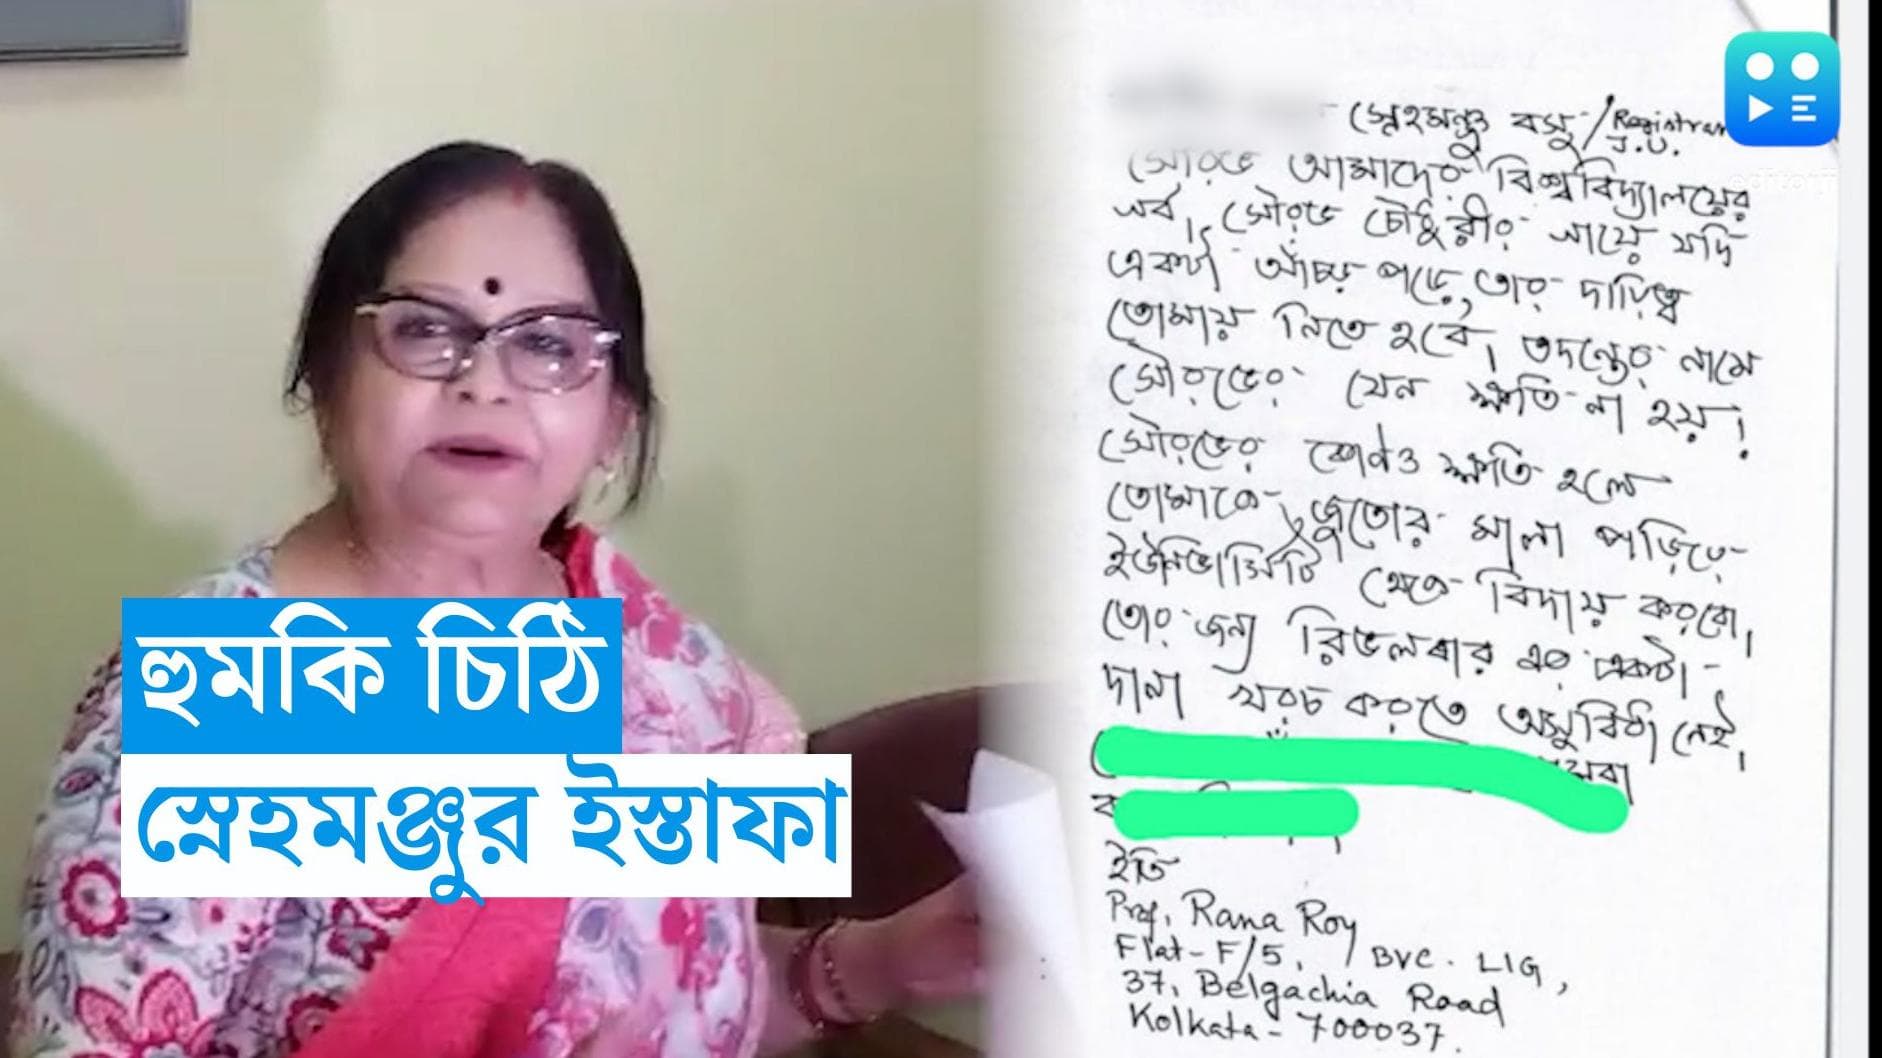 হুমকি চিঠি
স্নেহমঞ্জুর ইস্তাফা
editorji
স্নেহমঞ্জু বসু / Registrar J.U.
সৌরভ আমাদের বিশ্ববিদ্যালয়ের
গর্ব, সৌরভ চৌধুরীর গায়ে যদি
একটা আঁচড় পড়ে, তার দায়িত্ব
তোমায় নিতে হবে। তদন্তের নামে
সৌরভের যেন ক্ষতি না হয়!
সৌরভের কোনও ক্ষতি হলে
তোমাকে জুতোর মালা পড়িয়ে
ইউনিভার্সিটি থেকে বিদায় করবো,
তোর জন্য রিভলবার এর একটা
দানা খরচ করতে অসুবিধা নেই,
ইতি
Prof, Rana Roy
Flat- F/5, BVC. LIG,
37, Belgachia Road
Kolkata- 700037.